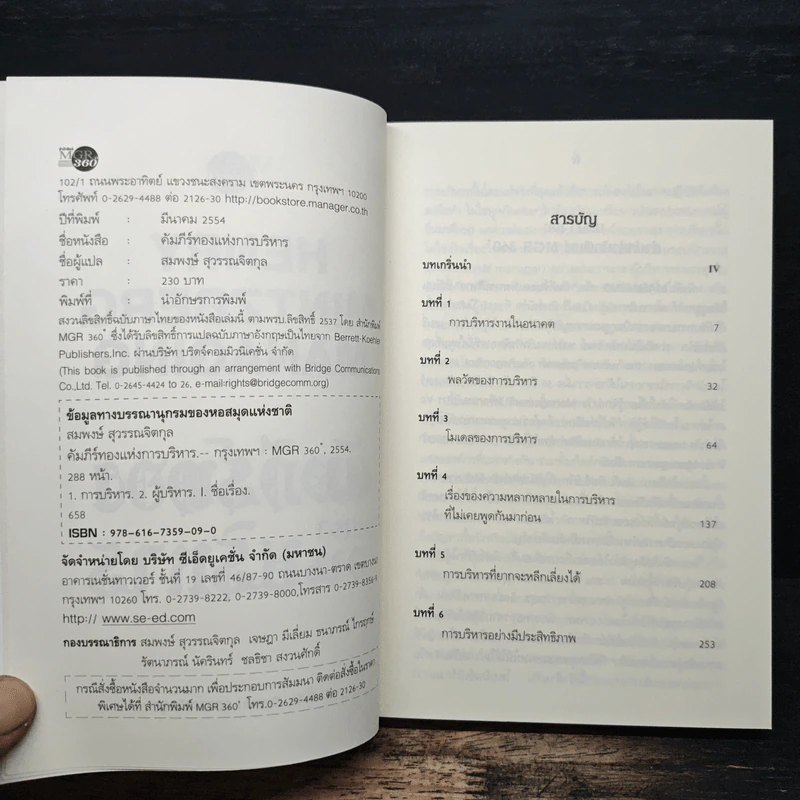 MGR
360°
102/1 ถนนพระอาทิตย์ แขวงชนะสงคราม เขตพระนคร กรุงเทพฯ 10200
โทรศัพท์ 0-2629-4488 ต่อ 2126-30 http://bookstore.manager.co.th
ปีที่พิมพ์ : มีนาคม 2554
ชื่อหนังสือ : คัมภีร์ทองแห่งการบริหาร
ชื่อผู้แปล : สมพงษ์ สุวรรณจิตกุล
ราคา : 230 บาท
พิมพ์ที่ : นำอักษรการพิมพ์
สงวนลิขสิทธิ์ฉบับภาษาไทยของหนังสือเล่มนี้ ตามพรบ.ลิขสิทธิ์ 2537 โดย สำนักพิมพ์
MGR 360° ซึ่งได้รับลิขสิทธิ์การแปลฉบับภาษาอังกฤษเป็นไทยจาก Berrett-Koehler
Publishers,Inc. ผ่านบริษัท บริดจ์คอมมิวนิเคชั่น จำกัด
(This book is published through an arrangement with Bridge Communications
Co.,Ltd. Tel. 0-2645-4424 to 26, e-mail:rights@bridgecomm.org)
ข้อมูลทางบรรณานุกรมของหอสมุดแห่งชาติ
สมพงษ์ สุวรรณจิตกุล
คัมภีร์ทองแห่งการบริหาร.-- กรุงเทพฯ : MGR 360°, 2554.
288 หน้า.
1. การบริหาร. 2. ผู้บริหาร. I. ชื่อเรื่อง.
658
ISBN : 978-616-7359-09-0
จัดจำหน่ายโดย บริษัท ซีเอ็ดยูเคชั่น จำกัด (มหาชน)
อาคารเนชั่นทาวเวอร์ ชั้นที่ 19 เลขที่ 46/87-90 ถนนบางนา-ตราด เขตบางนา
กรุงเทพฯ 10260 โทร. 0-2739-8222, 0-2739-8000,โทรสาร 0-2739-8356-9
http:// www.se-ed.com
กองบรรณาธิการ สมพงษ์ สุวรรณจิตกุล เจษฎา มีเลี่ยม ธนาภรณ์ ไกรฤกษ์
รัตนาภรณ์ นัครินทร์ ชลธิชา สงวนศักดิ์
กรณีสั่งซื้อหนังสือจำนวนมาก เพื่อประกอบการสัมมนา ติดต่อสั่งซื้อในราคา
พิเศษได้ที่ สำนักพิมพ์ MGR 360° โทร.0-2629-4488 ต่อ 2126-30
สารบัญ
บทเกริ่นนำ IV
บทที่ 1
การบริหารงานในอนาคต 7
บทที่ 2
พลวัตของการบริหาร 32
บทที่ 3
โมเดลของการบริหาร 64
บทที่ 4
เรื่องของความหลากหลายในการบริหาร
ที่ไม่เคยพูดกันมาก่อน 137
บทที่ 5
การบริหารที่ยากจะหลีกเลี่ยงได้ 208
บทที่ 6
การบริหารอย่างมีประสิทธิภาพ 253